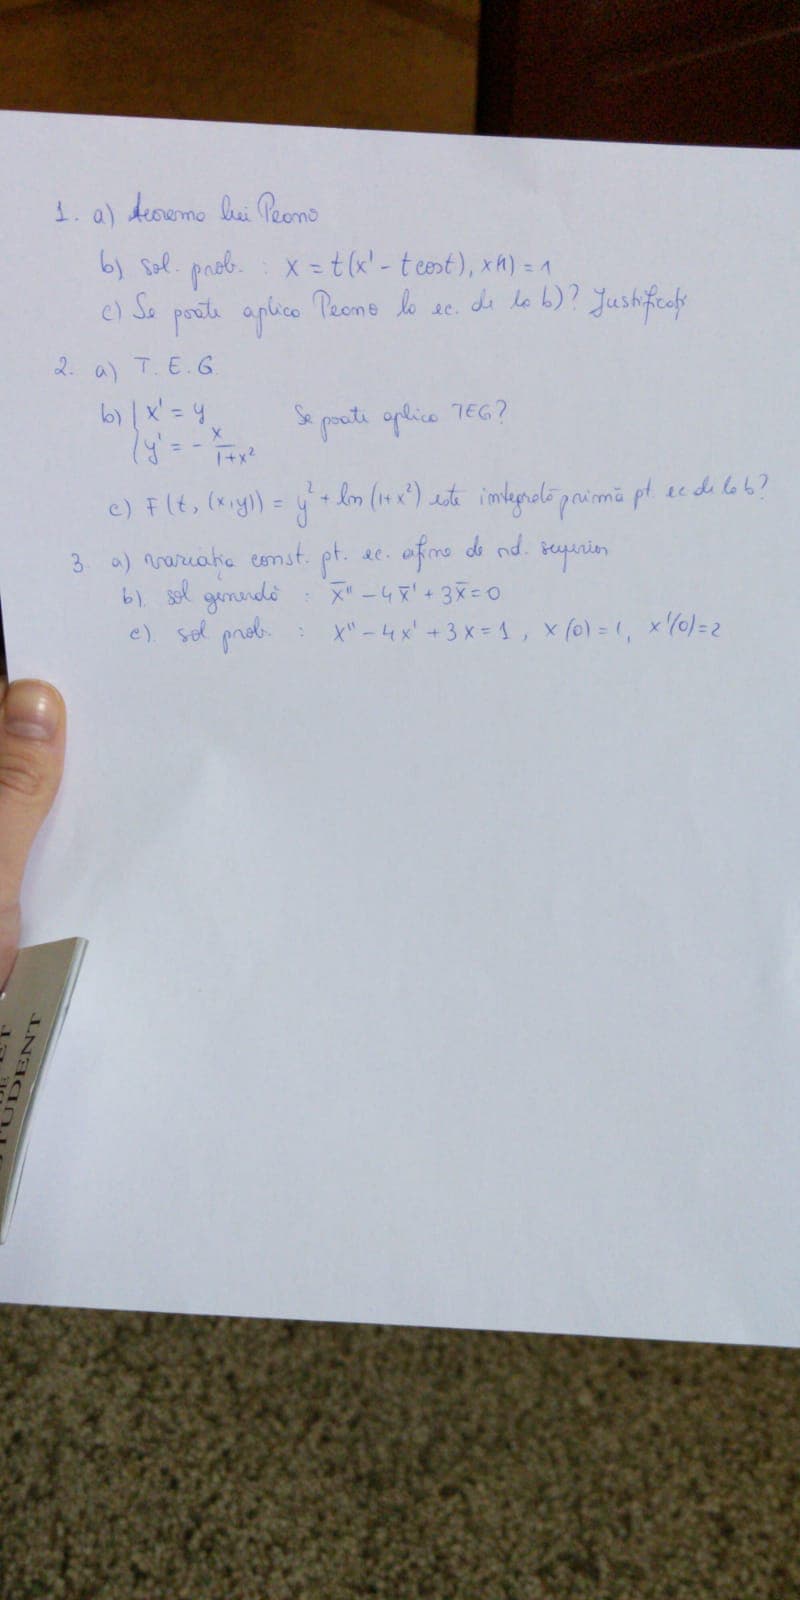 1. a) teorema lui Peano
b) sol. prob. : x = t(x' - t cost), x(1) = 1
c) Se poate aplica Peano la ec. de la b)? Justificați
2. a) T.E.G.
b) { x' = y
y' = - x/(1+x²) Se poate aplica TEG?
c) F(t, (x,y)) = y² + ln(1+x²) este integrală primă pt. ec de la b?
3. a) variația const. pt. ec. afine de ord. superior
b). sol generală : x̄" - 4x̄' + 3x̄ = 0
c). sol prob. : x" - 4x' + 3x = 1, x(0) = 1, x'(0) = 2
DE
STUDENT